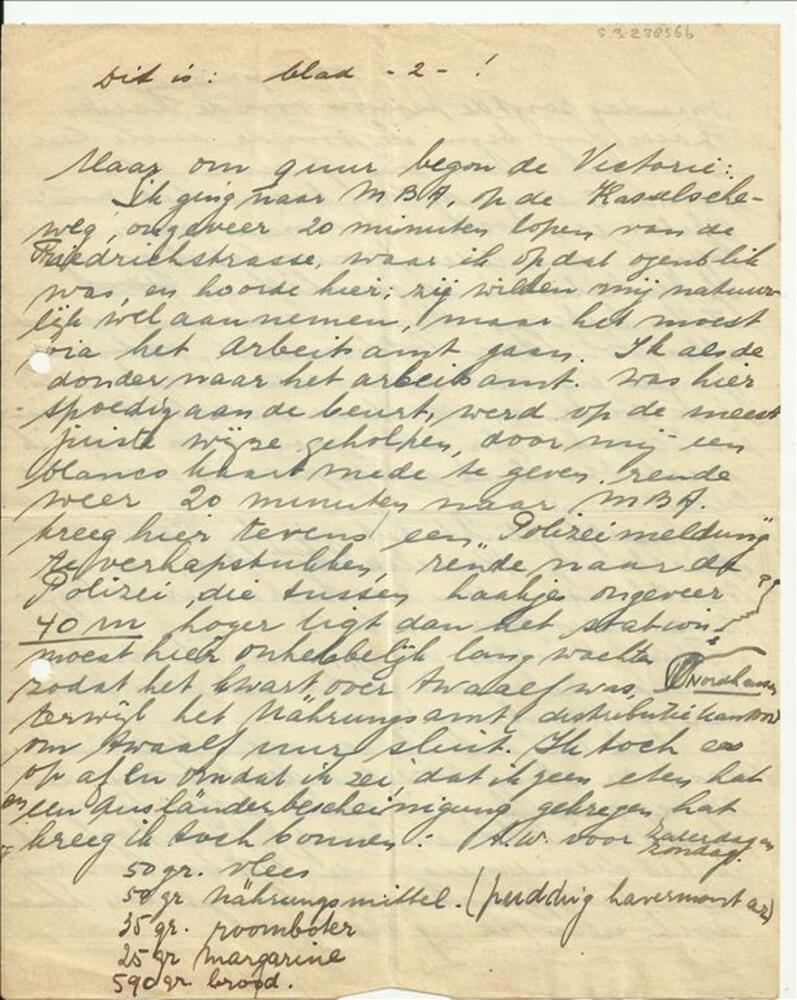 5.3.238566
Dit is: blad - 2 - !
Maar om 9 uur begon de Victorie:
Ik ging naar MBA, op de Kasselsche-
weg, ongeveer 20 minuten lopen van de
Friedrichstrasse, waar ik op dat ogenblik
was, en hoorde hier; zij wilden mij natuur-
lijk wel aannemen, maar het moest
via het Arbeitsamt gaan. Ik als de
donder naar het arbeitsamt. Was hier
spoedig aan de beurt, werd op de meest
juiste wijze geholpen, door mij een
blanco kaart mede te geven. rende
weer 20 minuten naar MBA.
kreeg hier tevens een "Polizeimeldung"
te verhapstukken, rende naar de
Polizei, die tussen haakjes ongeveer
40 m hoger ligt dan het station!
moest hier onhebbelijk lang wachten
zodat het kwart over twaalf was, Nordhausen
terwijl het Nährungsamt, distributiekantoor
om twaalf uur sluit. Ik toch er
op af en omdat ik zei, dat ik geen eten had
en een Ausländerbescheinigung gekregen had
kreeg ik toch bonnen: A.W. voor zaterdag en
zondag.
50 gr. vlees
50 gr Nährungsmittel. (pudding havermout a.z)
35 gr. roomboter
25 gr margarine
590 gr. brood.